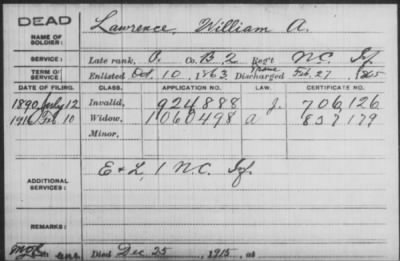 DEAD
NAME OF SOLDIER: Lawrence, William A.
SERVICE: Late rank, P. Co. B. 2 Reg't N.C. If.
TERM OF SERVICE Enlisted Oct. 10, 1863 Discharged Feb. 27, 1865
DATE OF FILING. CLASS. APPLICATION NO. LAW. CERTIFICATE NO.
1890 July 12 Invalid, 924888 J. 706126
1916 Feb 10 Widow, 1060498 a 837179
Minor,
ADDITIONAL SERVICES: E + L 1 N.C. If.
REMARKS:
Died Dec 25, 1915, at